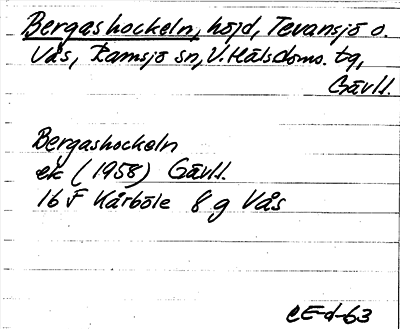 Bergashockeln, höjd, Tevansjö o.
Vås, Ramsjö sn, V. Hälsdoms. tg,
Gävll.
Bergashockeln
ek (1958) Gävll.
16 F Kårböle 8 g Vås
CE-d-63